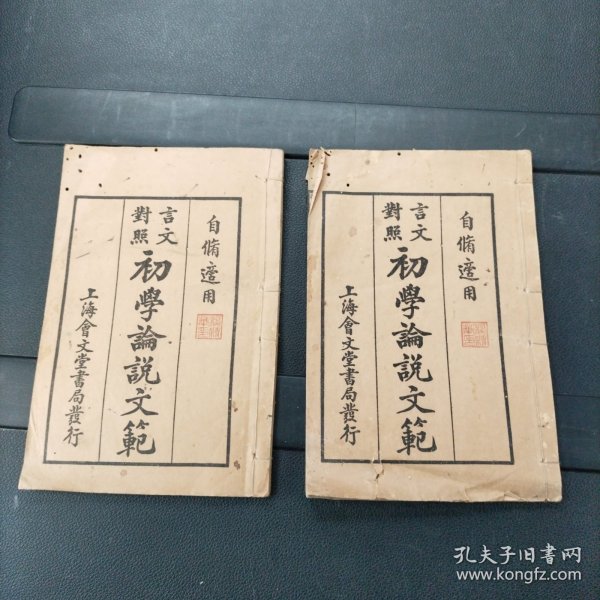 自脩適用
言文
對照
初學論說文範
上海會文堂書局發行
自脩適用
言文
對照
初學論說文範
上海會文堂書局發行
孔夫子旧书网
www.kongfz.com